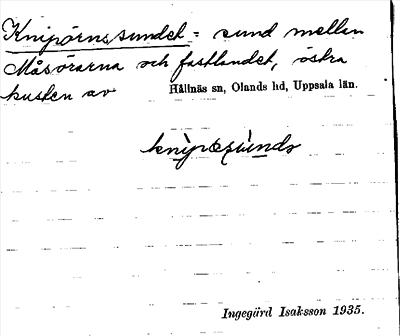 Knipornssundet = sund mellan
Måsörarna och fastlandet, östra
kusten av Hållnäs sn, Olands hd, Uppsala län.
Ingegärd Isaksson 1935.